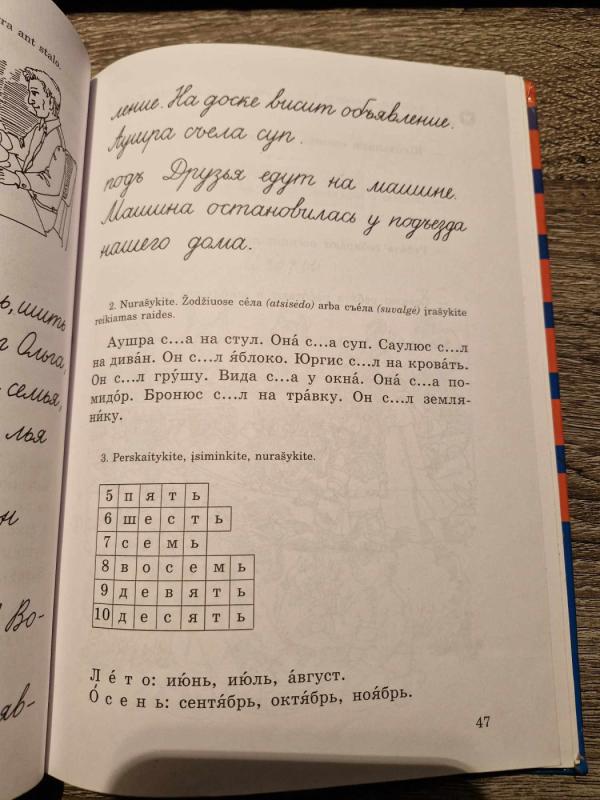 ra ant stalo.
ление. На доске висит объявление.
Аушра съела суп.
подъ Друзья едут на машине.
Машина остановилась у подъезда
нашего дома.
ь, шить
Ольга,
семья,
лья
Во-
яв-
2. Nurašykite. Žodžiuose се́ла (atsisėdo) arba съе́ла (suvalgė) įrašykite
reikiamas raides.
Аушра с...а на стул. Она́ с...а суп. Саулюс с...л
на дива́н. Он с...л я́блоко. Юргис с...л на крова́ть.
Он с...л гру́шу. Вида с...а у окна́. Она́ с...а по-
мидо́р. Бронюс с...л на тра́вку. Он с...л земля-
ни́ку.
3. Perskaitykite, įsiminkite, nurašykite.
5 п я т ь
6 ш е с т ь
7 с е м ь
8 в о с е м ь
9 д е в я т ь
10 д е с я т ь
Л е́ т о: ию́нь, ию́ль, а́вгуст.
О́ с е н ь: сентя́брь, октя́брь, ноя́брь.
47